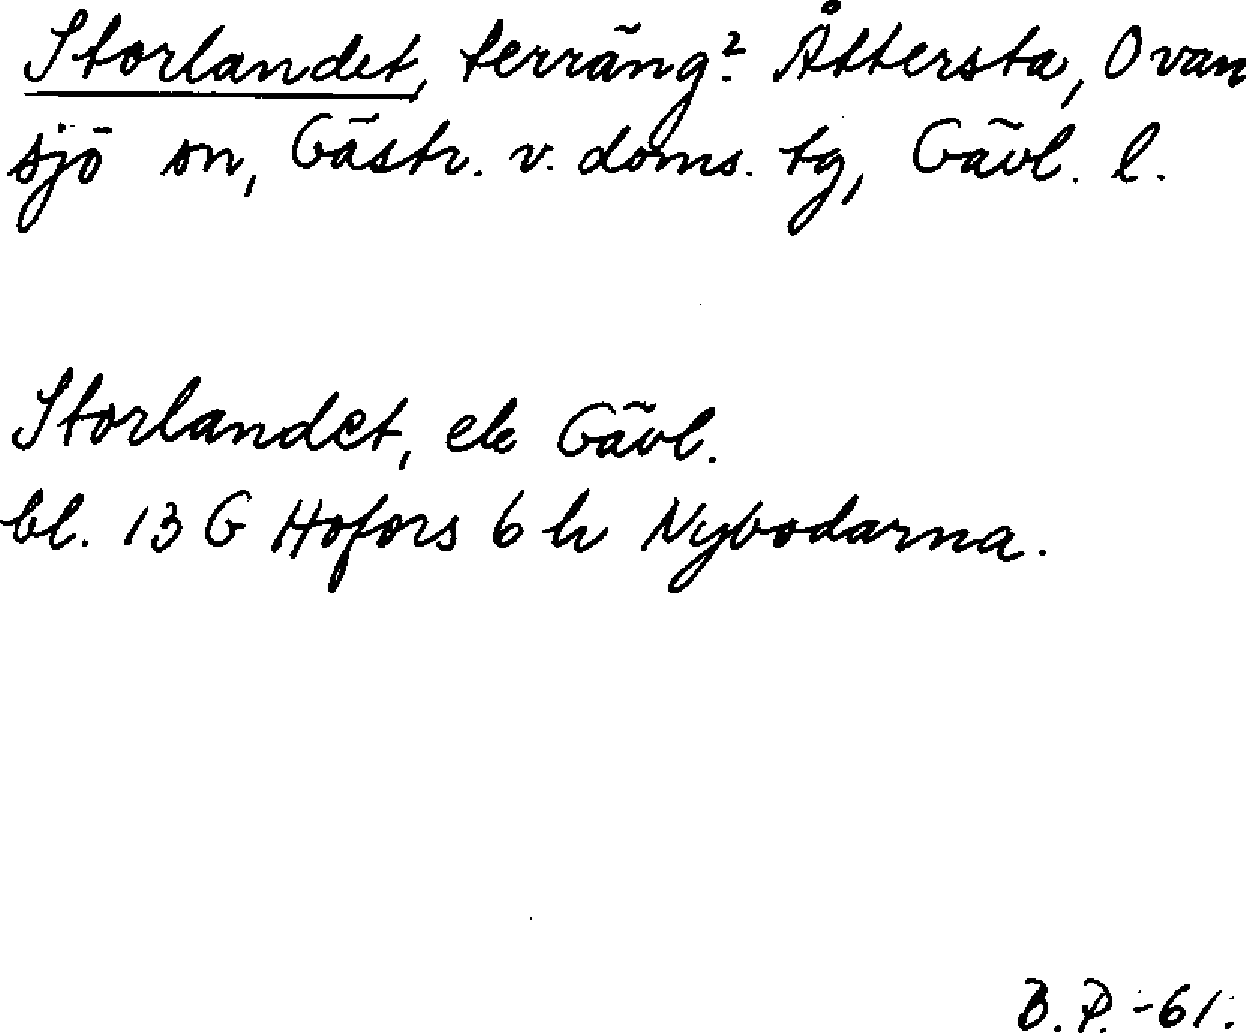 Storlandet, terräng? Åttersta, Ovan
sjö sn, Gästr. v. doms. tg, Gävl. l.
Storlandet, ek Gävl.
bl. 13 G Hofors 6 h Nybodarna.
B. P. -61.